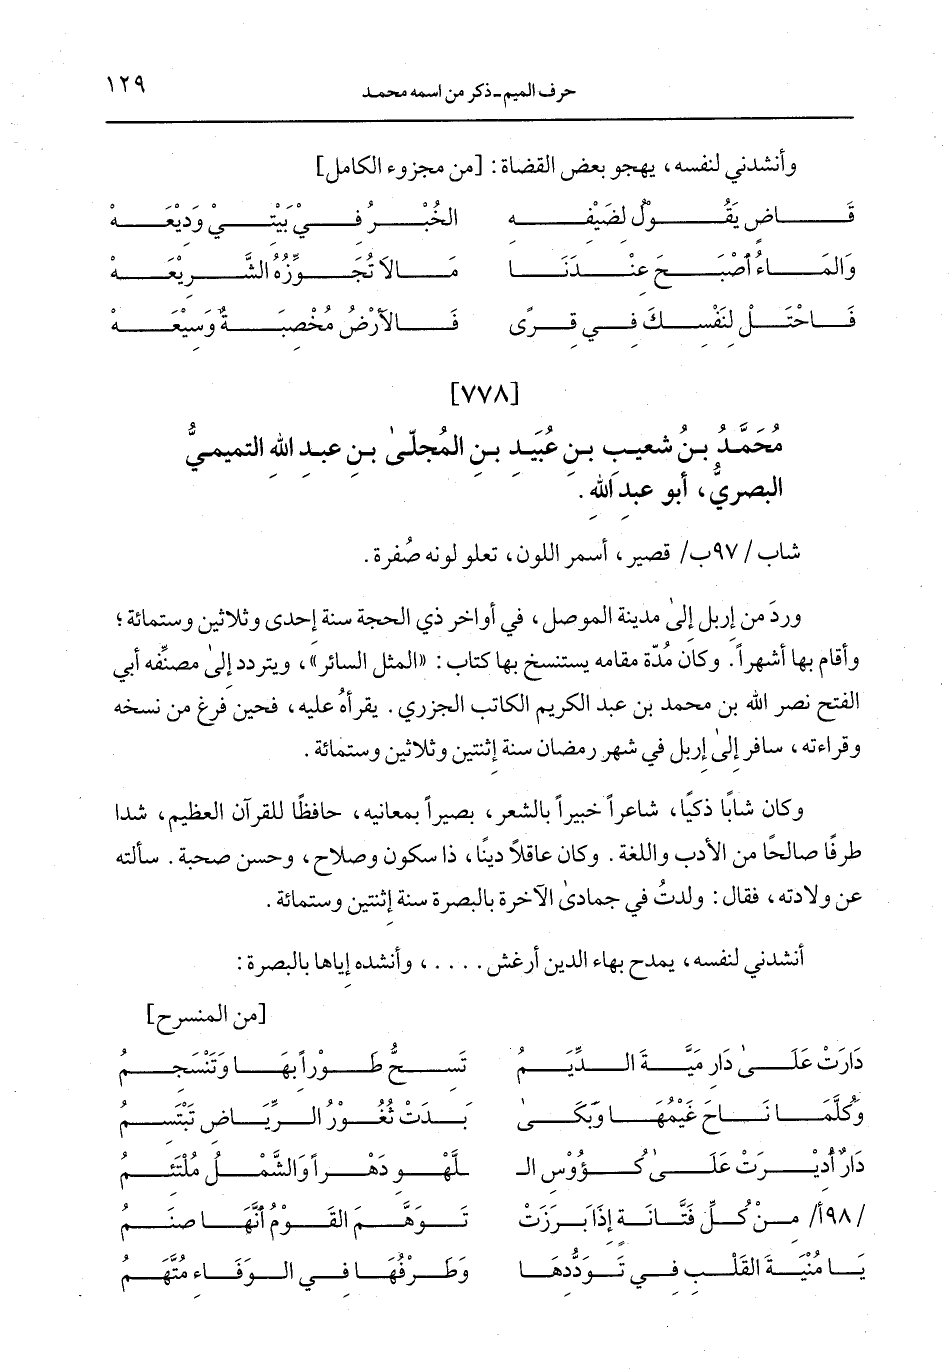 حرف الميم - ذكر من اسمه محمد ١٢٩
وأنشدني لنفسه، يهجو بعض القضاة: [من مجزوء الكامل]
قَـاضٍ يَقُـولُ لضَيْفِـهِ الخُبْـرُ فِـيْ بَيْتِـيْ وَدِيْعَـهْ
وَالمَـاءُ أصْبَـحَ عِنْـدَنَـا مَـالاَ تُجَـوِّزُهُ الشَّـرِيْعَـهْ
فَـاحْتَـلْ لِنَفْسِـكَ فِـي قِـرًى فَـالأرْضُ مُخْصِبَـةٌ وَسِيْعَـهْ
[٧٧٨]
مُحَمَّدُ بـنُ شعيـبِ بـنِ عُبَيـدِ بـنِ المُجلّـىٰ بـنِ عبـدِ اللهِ التميمـيُّ
البصريُّ، أبو عبدِ اللهِ.
شاب /٩٧ب/ قصير، أسمر اللون، تعلو لونه صُفرة.
وردَ من إربل إلىٰ مدينة الموصل، في أواخر ذي الحجة سنة إحدى وثلاثين وستمائة؛
وأقام بها أشهراً. وكان مُدّة مقامه يستنسخ بها كتاب: «المثل السائر»، ويتردد إلىٰ مصنِّفه أبي
الفتح نصر الله بن محمد بن عبد الكريم الكاتب الجزري. يقرأهُ عليه، فحين فرغ من نسخه
وقراءته، سافر إلىٰ إربل في شهر رمضان سنة إثنتين وثلاثين وستمائة.
وكان شابًا ذكيًا، شاعراً خبيراً بالشعر، بصيراً بمعانيه، حافظًا للقرآن العظيم، شدا
طرفًا صالحًا من الأدب واللغة. وكان عاقلاً دينًا، ذا سكون وصلاح، وحسن صحبة. سألته
عن ولادته، فقال: ولدتُ في جمادىٰ الآخرة بالبصرة سنة إثنتين وستمائة.
أنشدني لنفسه، يمدح بهاء الدين أرغش....، وأنشده إياها بالبصرة:
[من المنسرح]
دَارَتْ عَلَـىٰ دَارِ مَيَّـةَ الـدِّيَـمُ تَسـحُّ طَـوْراً بِهَـا وَتَنْسَجِـمُ
وَكُلَّمَـا نَـاحَ غَيْمُهَـا وَبَكَـىٰ بَـدَتْ ثُغُـوْرُ الـرِّيَـاضِ تَبْتَسِـمُ
دَارٌ أُدِيْـرَتْ عَلَـىٰ كُـؤُوْسِ الـ ـلَّهْـوِ دَهْـراً وَالشَّمْـلُ مُلْتَئِـمُ
/٩٨أ/ مِـنْ كُـلِّ فَتَّـانَـةٍ إذَا بَـرَزَتْ تَـوَهَّـمَ القَـوْمُ أنَّهَـا صَنَـمُ
يَـا مُنْيَـةَ القَلْـبِ فِـي تَـوَدُّدِهَـا وَطَـرْفُهَـا فِـي الـوَفَـاءِ مُتَّهَـمُ